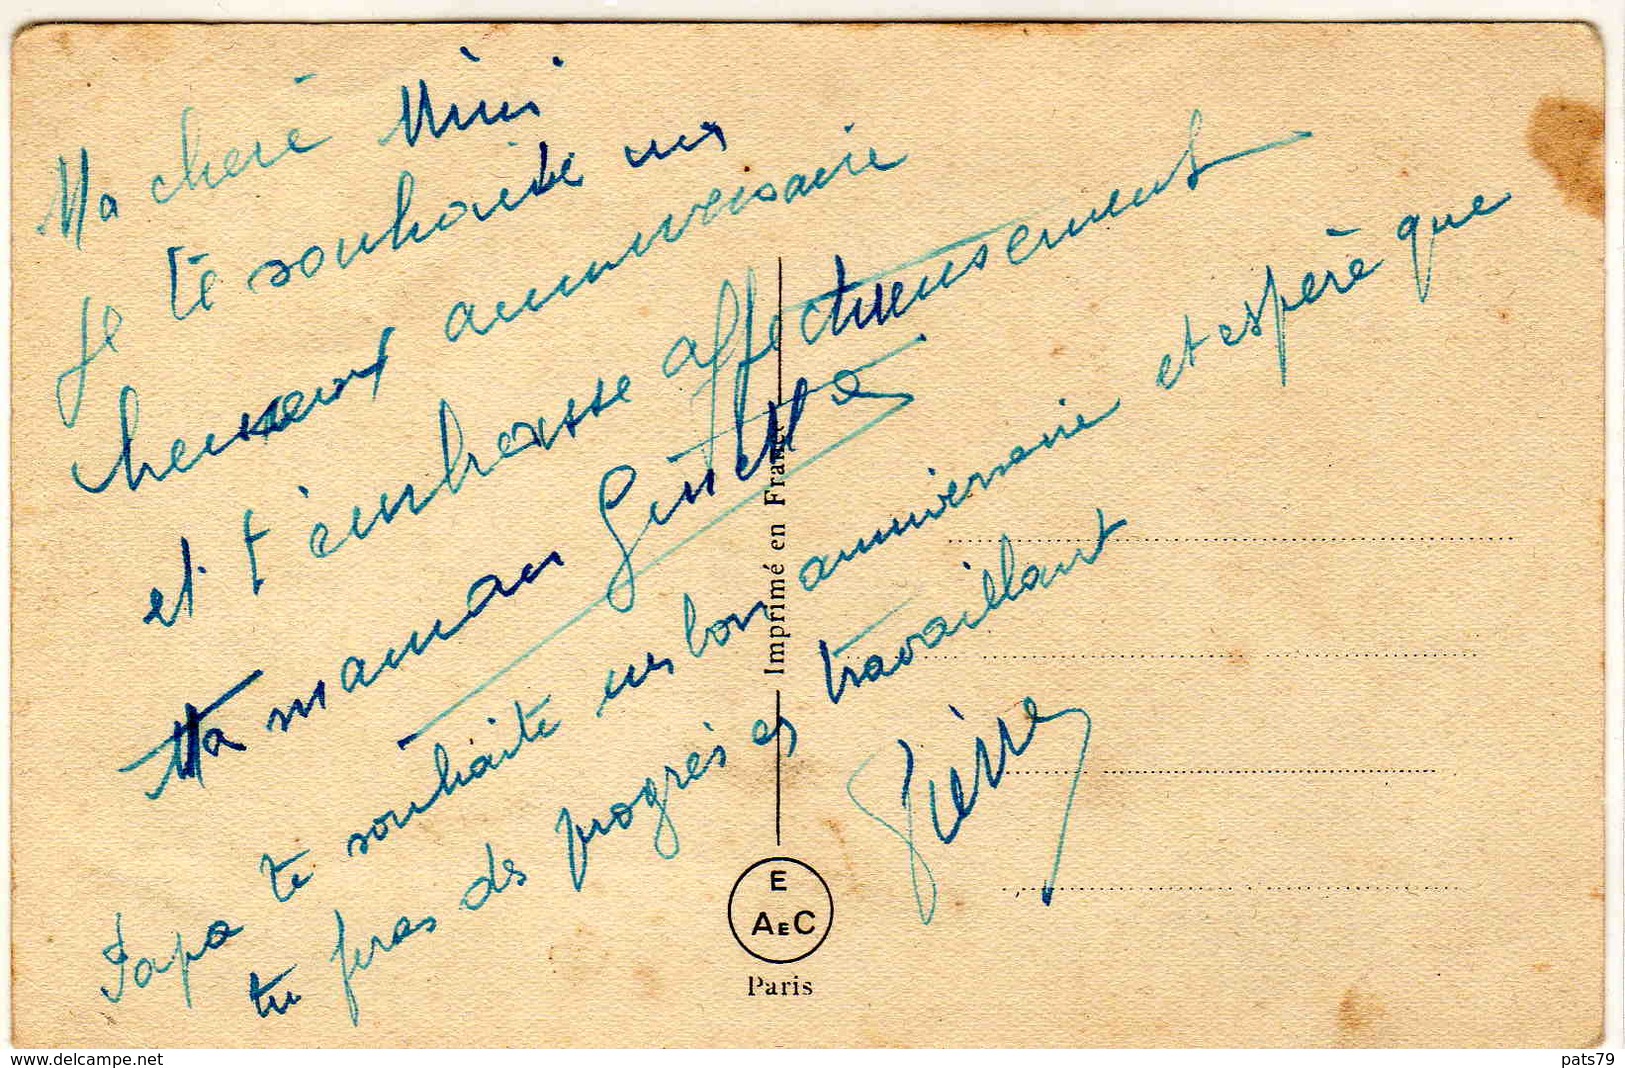 Ma cherè Mimi
Je te souhaite un
heureux anniversaire
et t'embrasse affectueusement
Ta maman Ginette
Papa te souhaite un bon anniversaire et espère que
tu feras des progrès en travaillant
Pierre
Imprimé en France
E
AEC
Paris
www.delcampe.net
pats79